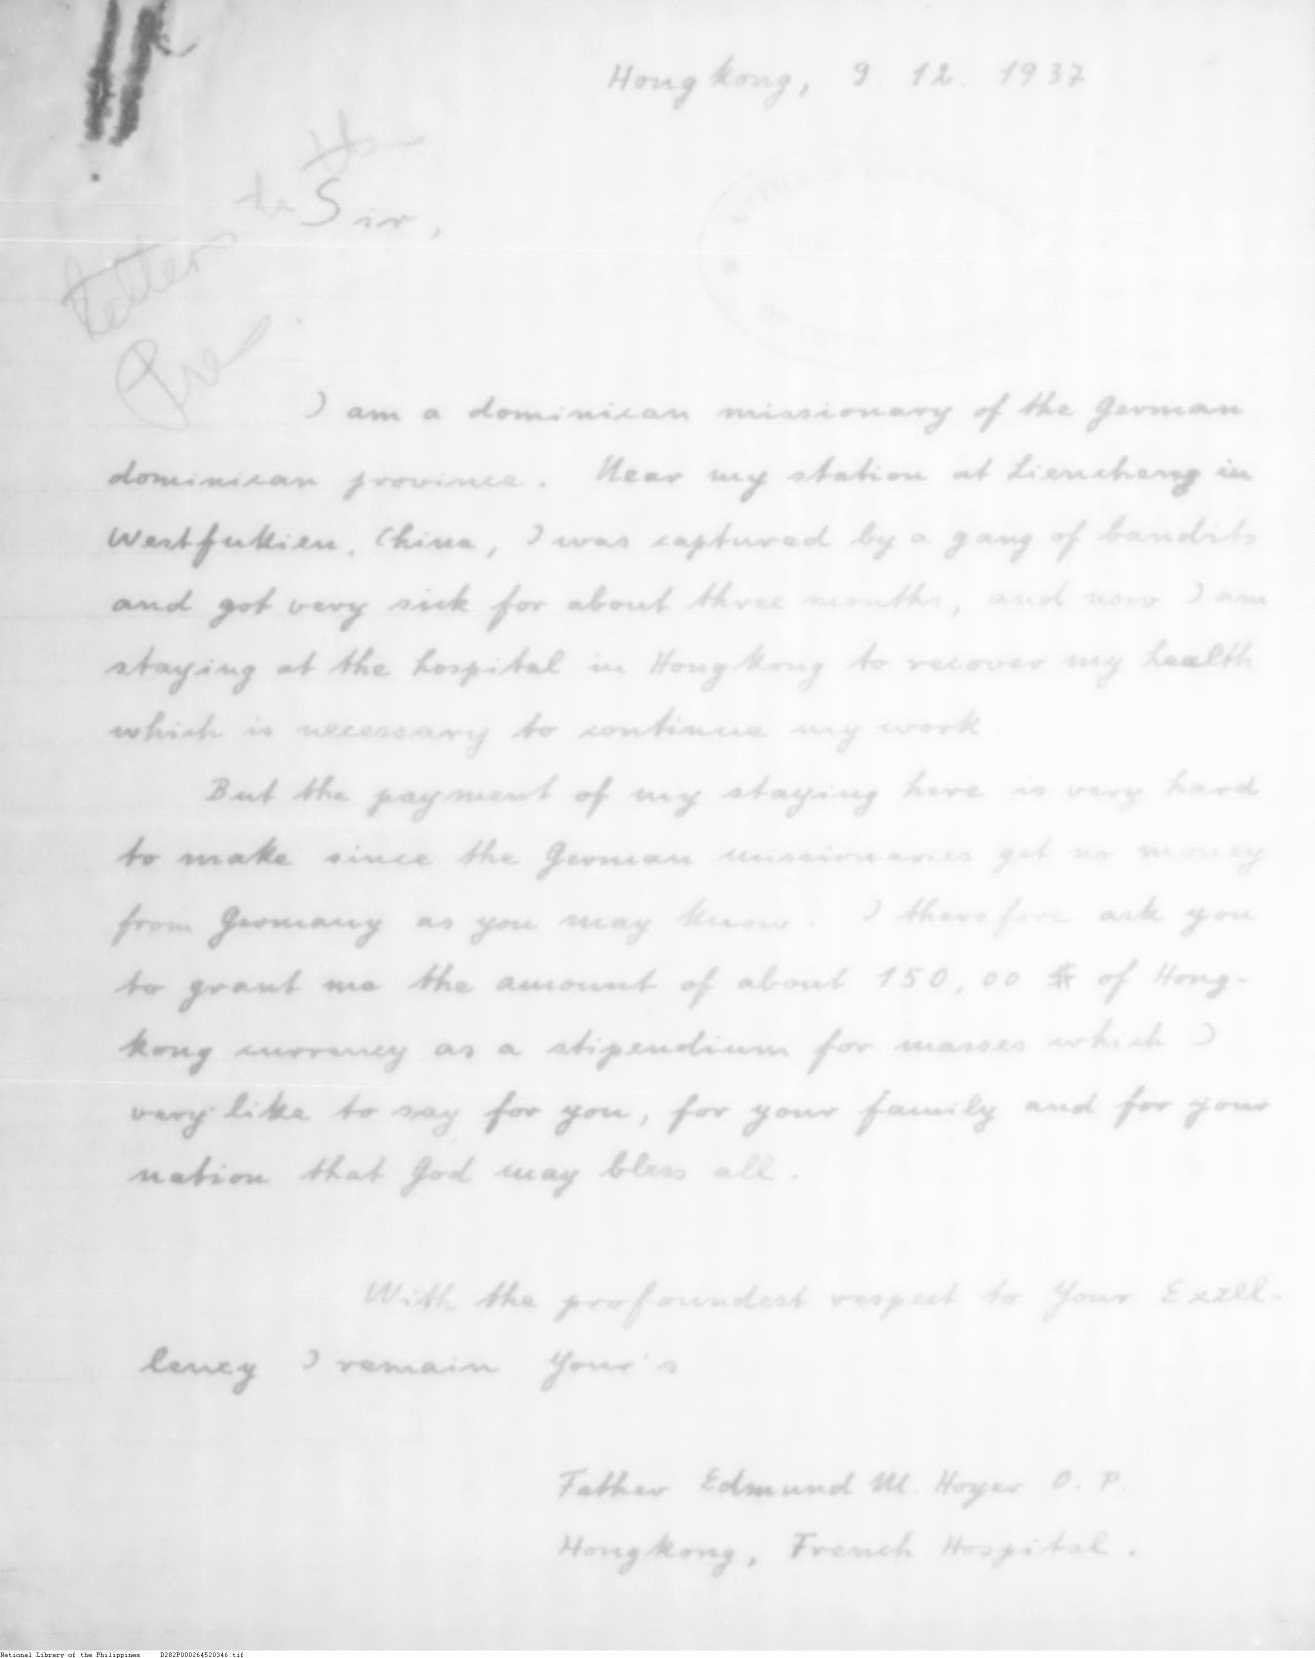 Hongkong, 9. 12. 1937
Sir,
I am a dominican missionary of the German
dominican province. Near my station at Liencheng in
Westfukien, China, I was captured by a gang of bandits
and got very sick for about three months, and now I am
staying at the hospital in Hongkong to recover my health
which is necessary to continue my work
But the payment of my staying here is very hard
to make since the German missionaries get no money
from Germany as you may know. I therefore ask you
to grant me the amount of about 150,00 $ of Hong-
kong currency as a stipendium for masses which I
very like to say for you, for your family and for your
nation that God may bless all.
With the profoundest respect to Your Exzel-
lency I remain Your's
Father Edmund M. Hoyer O. P.
Hongkong, French Hospital.
National Library of the Philippines D282P000264520346.tif